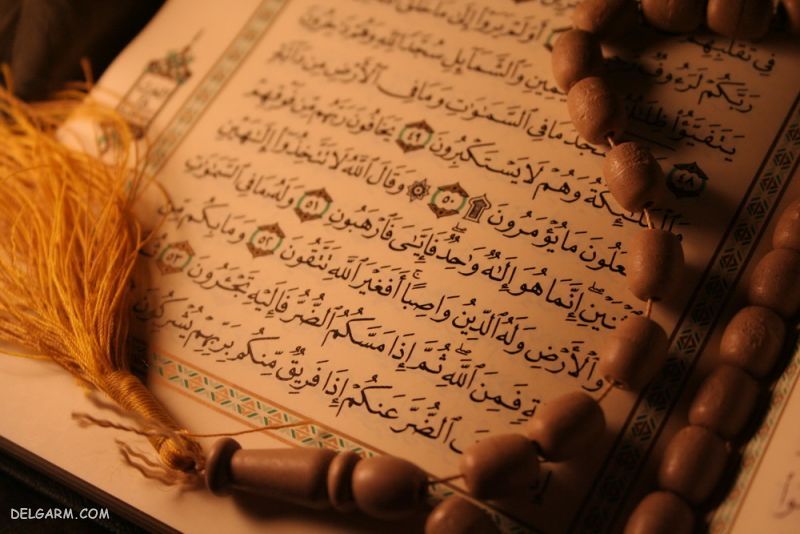 فِى تَقَلُّبِهِمْ
رَبَّكُمْ لَرَءُوفٌ أَوَلَمْ يَرَوْا۟ إِلَىٰ مَا خَلَقَ
يَتَفَيَّؤُا۟ ظِلَٰلُهُۥ ٱلْيَمِينِ وَٱلشَّمَآئِلِ سُجَّدًا لِّلَّهِ وَهُمْ دَٰخِرُونَ
٤٨ يَسْجُدُ مَا فِى ٱلسَّمَٰوَٰتِ وَمَا فِى ٱلْأَرْضِ مِن دَآبَّةٍ
وَٱلْمَلَٰٓئِكَةُ وَهُمْ لَا يَسْتَكْبِرُونَ ٤٩ يَخَافُونَ رَبَّهُم مِّن فَوْقِهِمْ
وَيَفْعَلُونَ مَا يُؤْمَرُونَ ۩ ٥٠ ۞ وَقَالَ ٱللَّهُ لَا تَتَّخِذُوٓا۟ إِلَٰهَيْنِ
ٱثْنَيْنِ ۖ إِنَّمَا هُوَ إِلَٰهٌ وَٰحِدٌ ۖ فَإِيَّٰىَ فَٱرْهَبُونِ ٥١ وَلَهُۥ مَا فِى ٱلسَّمَٰوَٰتِ
وَٱلْأَرْضِ وَلَهُ ٱلدِّينُ وَاصِبًا ۚ أَفَغَيْرَ ٱللَّهِ تَتَّقُونَ ٥٢ وَمَا بِكُم مِّن
فَمِنَ ٱللَّهِ ۖ ثُمَّ إِذَا مَسَّكُمُ ٱلضُّرُّ فَإِلَيْهِ تَجْـَٔرُونَ ٥٣
ٱلضُّرَّ عَنكُمْ إِذَا فَرِيقٌ مِّنكُم بِرَبِّهِمْ يُشْرِكُونَ
DELGARM.COM